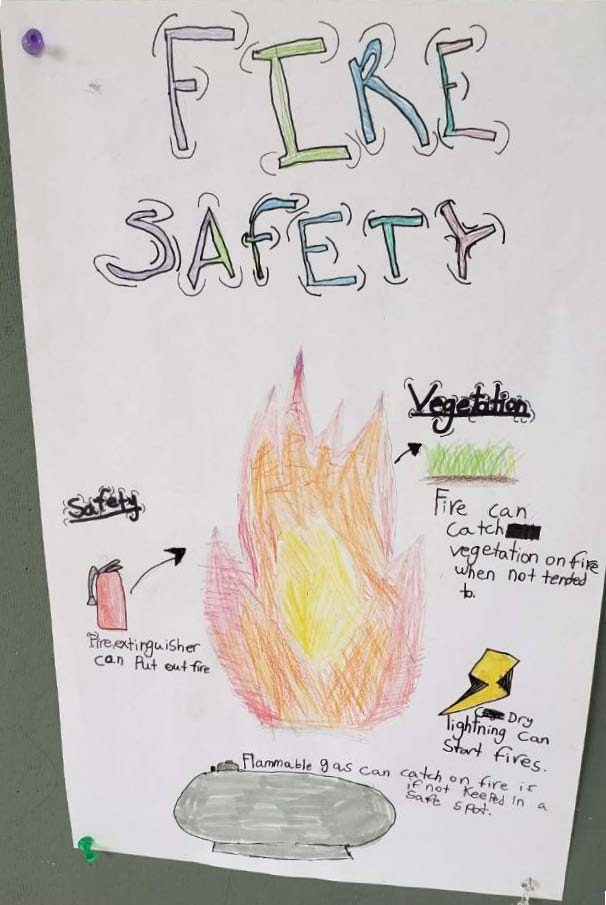 FIRE
SAFETY
Vegetation
Fire can
catch
vegetation on fire
when not tended
to.
Safety
Fire extinguisher
can Put out fire
Dry
lightning can
Start fires.
Flammable gas can catch on fire if
if not Keeped in a
Safe spot.